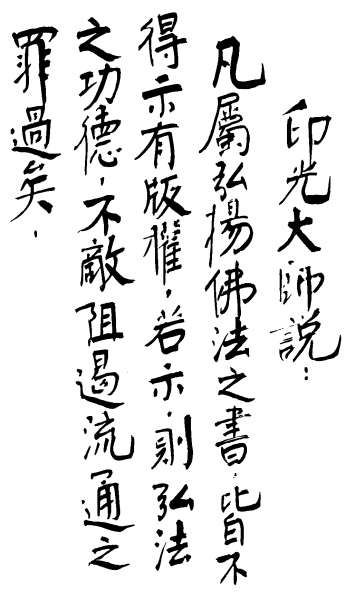 印光大師說：
凡屬弘揚佛法之書，皆不
得示有版權，若示，則弘法
之功德，不敵阻遏流通之
罪過矣，